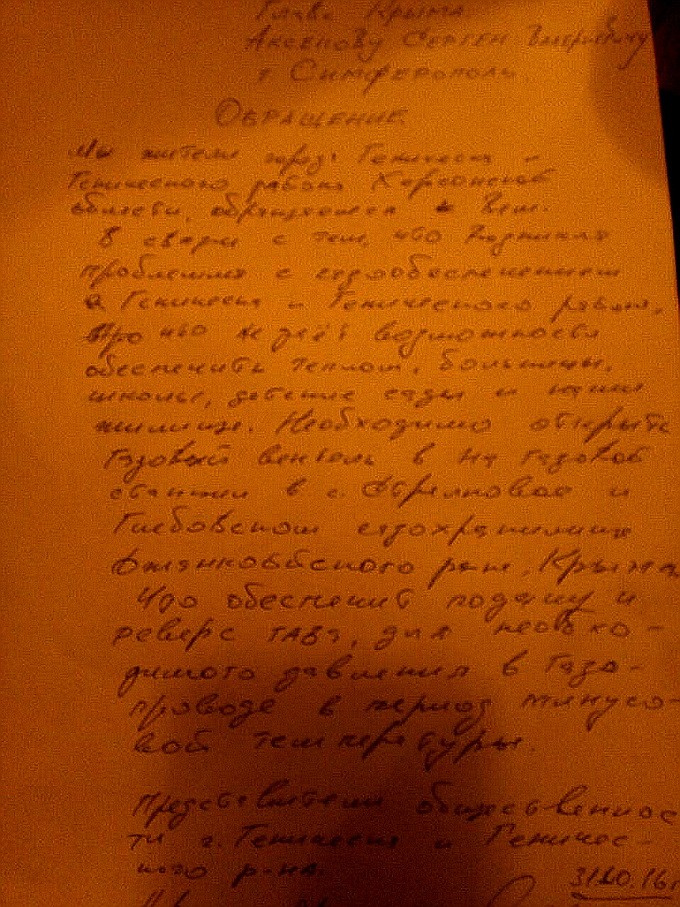 Глава Крыма
Аксенову Сергею Валериевичу
г Симферополь
Обращение
Мы жители города Геническа и
Генического района Херсонской
области, обращаемся к Вам.
В связи с тем, что возникла
проблема с газообеспечением
г Геническа и Генического района,
что не даёт возможности
обеспечить теплом, больницы,
школы, детские сады и наши
жилища. Необходимо открыть
газовый вентель в на газовой
станции в с. Стрелковое и
Глебовском газохранилище
Джанкойского рай, Крыма
Что обеспечит подачу и
реверс газа, для необхо-
димого давления в газо-
проводе в период минусо-
вой температуры.
Представители общественнос
ти г. Геническа и Геничес-
кого р-на.
31.10.16г